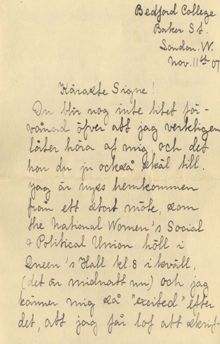 Bedford College
Baker St.
London. W.
Nov. 11th 07
Käraste Signe!
Du blir nog inte litet för-
vånad öfver att jag verkligen
låter höra af mig och det
har du ju också skäl till.
Jag är nyss hemkommen
från ett stort möte, som
the National Women's Social
& Political Union höll i
Queen's Hall kl. 8 i kväll.
(det är midnatt nu) och jag
känner mig så "excited" efter
det, att jag får lof att skrif-